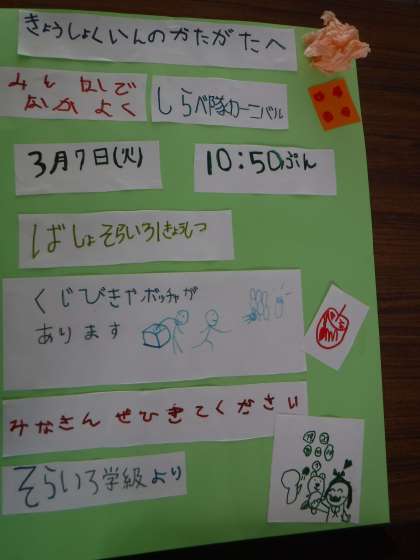 きょうしょくいんのかたがたへ
みんなで
なかよく
しらべ隊カーニバル
3月7日(火)
10:50ぷん
ばしょそらいろきょうしつ
くじびきやボッチャが
あります
みなさんぜひきてください
そらいろ学級より